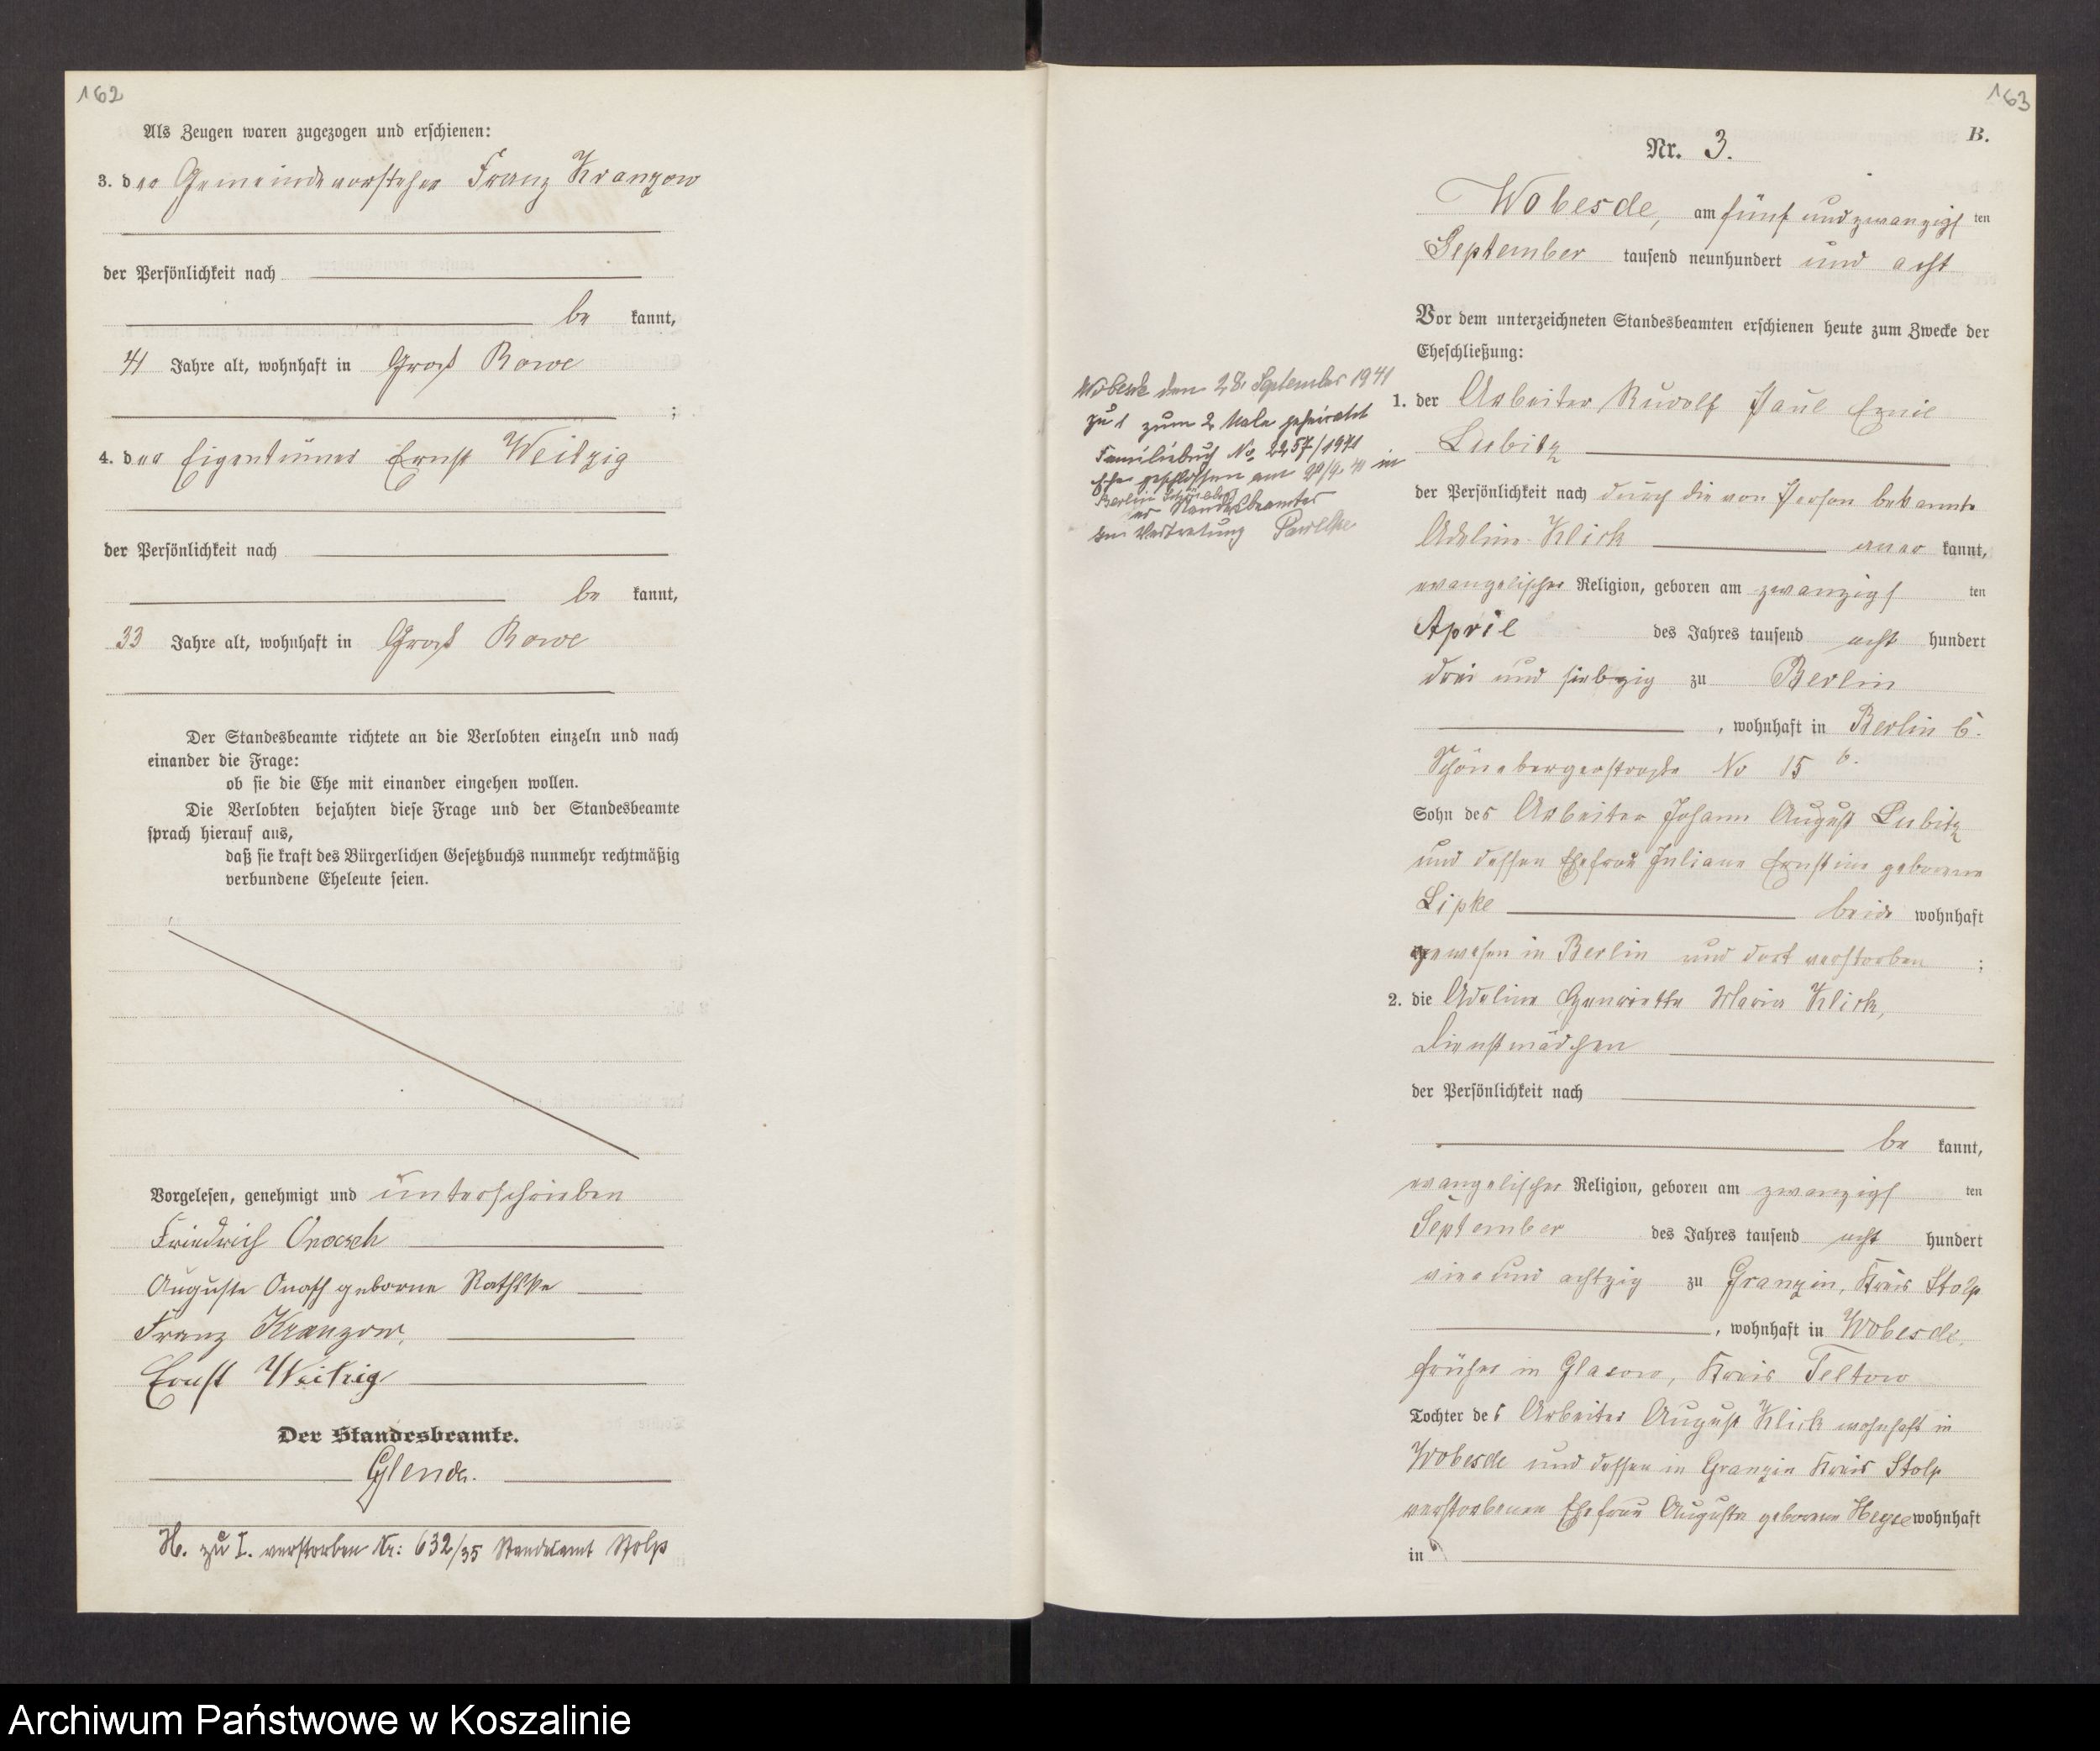 162
Als Zeugen waren zugezogen und erschienen:
3. der Gemeindevorsteher Franz Kranzow
der Persönlichkeit nach
be kannt,
41 Jahre alt, wohnhaft in Groß Rowe
;
4. der Eigentümer Ernst Weitzig
der Persönlichkeit nach
be kannt,
33 Jahre alt, wohnhaft in Groß Rowe
Der Standesbeamte richtete an die Verlobten einzeln und nach
einander die Frage:
ob sie die Ehe mit einander eingehen wollen.
Die Verlobten bejahten diese Frage und der Standesbeamte
sprach hierauf aus,
daß sie kraft des Bürgerlichen Gesetzbuchs nunmehr rechtmäßig
verbundene Eheleute seien.
Vorgelesen, genehmigt und unterschrieben
Friedrich
Auguste geborne
Franz Kranzow
Ernst Weitzig
Der Standesbeamte.
H. zu I. verstorben Nr: 632/35 Standesamt Stolp
163
B.
Nr. 3.
Wobesde, am fünf und zwanzigs ten
September tausend neunhundert und acht
Vor dem unterzeichneten Standesbeamten erschienen heute zum Zwecke der
Eheschließung:
Wobesde den 28. September 1941
zu 1 zum 2 Male geheiratet
Familienbuch No. 2257/1941
Ehe geschlossen am in
Berlin Schöneberg
Standesbeamter
In Vertretung
1. der Arbeiter Rudolf Paul Emil
Lubitz
der Persönlichkeit nach durch die von Person bekannte
Adeline Klick aner kannt,
evangelischer Religion, geboren am zwanzigs ten
April des Jahres tausend acht hundert
drei und siebzig zu Berlin
, wohnhaft in Berlin
Schönebergerstraße No 15 b.
Sohn des Arbeiter Johann August Lubitz
und dessen Ehefrau Juliane Ernstine geborene
Lipke beide wohnhaft
gewesen in Berlin und dort verstorben ;
2. die Adeline Henriette Maria Klick,
Dienstmädchen
der Persönlichkeit nach
be kannt,
evangelischer Religion, geboren am zwanzigs ten
September des Jahres tausend acht hundert
vier und achtzig zu Granzin, Kreis Stolp
, wohnhaft in Wobesde,
früher in Glasow, Kreis Teltow
Tochter des Arbeiter August Klick wohnhaft in
Wobesde und dessen in Granzin Kreis Stolp
verstorbenen Ehefrau Auguste geborene wohnhaft
in
Archiwum Państwowe w Koszalinie